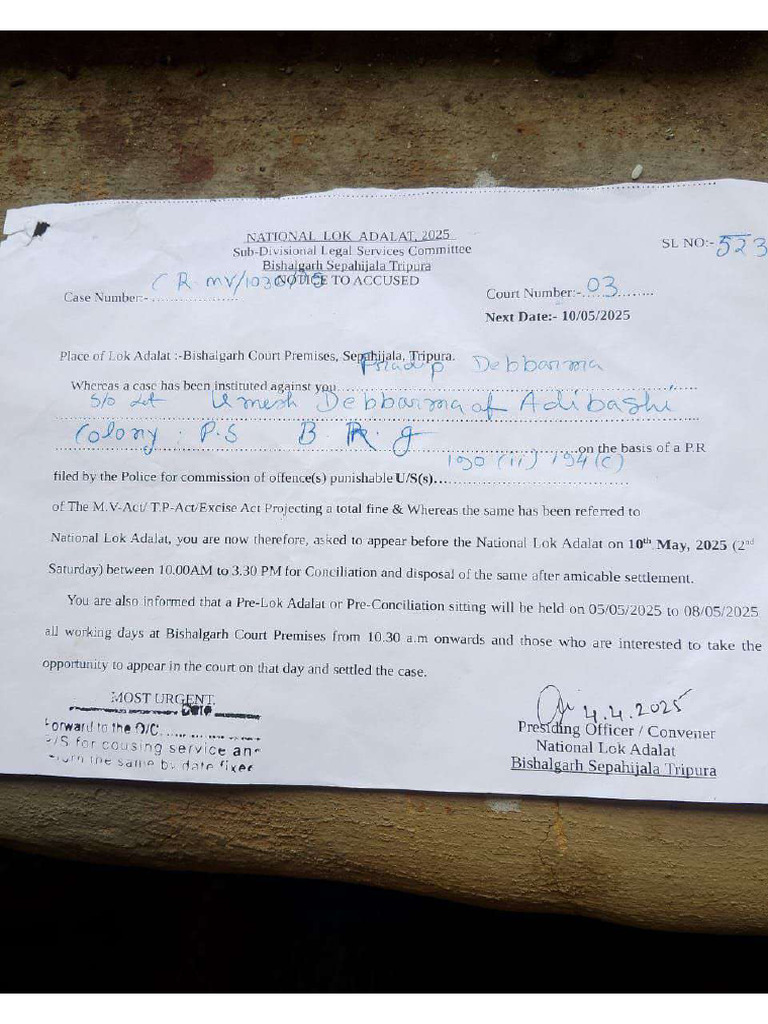 NATIONAL LOK ADALAT, 2025
Sub-Divisional Legal Services Committee
SL NO:- 523
Bishalgarh Sepahijala Tripura
NOTICE TO ACCUSED
Case Number:- CR MV/1030/
Court Number:- 03
Next Date:- 10/05/2025
Place of Lok Adalat :-Bishalgarh Court Premises, Sepahijala, Tripura.
Whereas a case has been instituted against you Pradip Debbarma
S/o Let Umesh Debbarma of Adibashi
Colony P.S B R g on the basis of a P.R
filed by the Police for commission of offence(s) punishable U/S(s). 190 (ii) 194(c)
of The M.V-Act/ T.P-Act/Excise Act Projecting a total fine & Whereas the same has been referred to
National Lok Adalat, you are now therefore, asked to appear before the National Lok Adalat on 10th May, 2025 (2nd
Saturday) between 10.00AM to 3.30 PM for Conciliation and disposal of the same after amicable settlement.
You are also informed that a Pre-Lok Adalat or Pre-Conciliation sitting will be held on 05/05/2025 to 08/05/2025
all working days at Bishalgarh Court Premises from 10.30 a.m onwards and those who are interested to take the
opportunity to appear in the court on that day and settled the case.
MOST URGENT
Date
Forward to the O/C
P/S for cousing service an
the same by date fixed
4.4.2025
Presiding Officer / Convener
National Lok Adalat
Bishalgarh Sepahijala Tripura